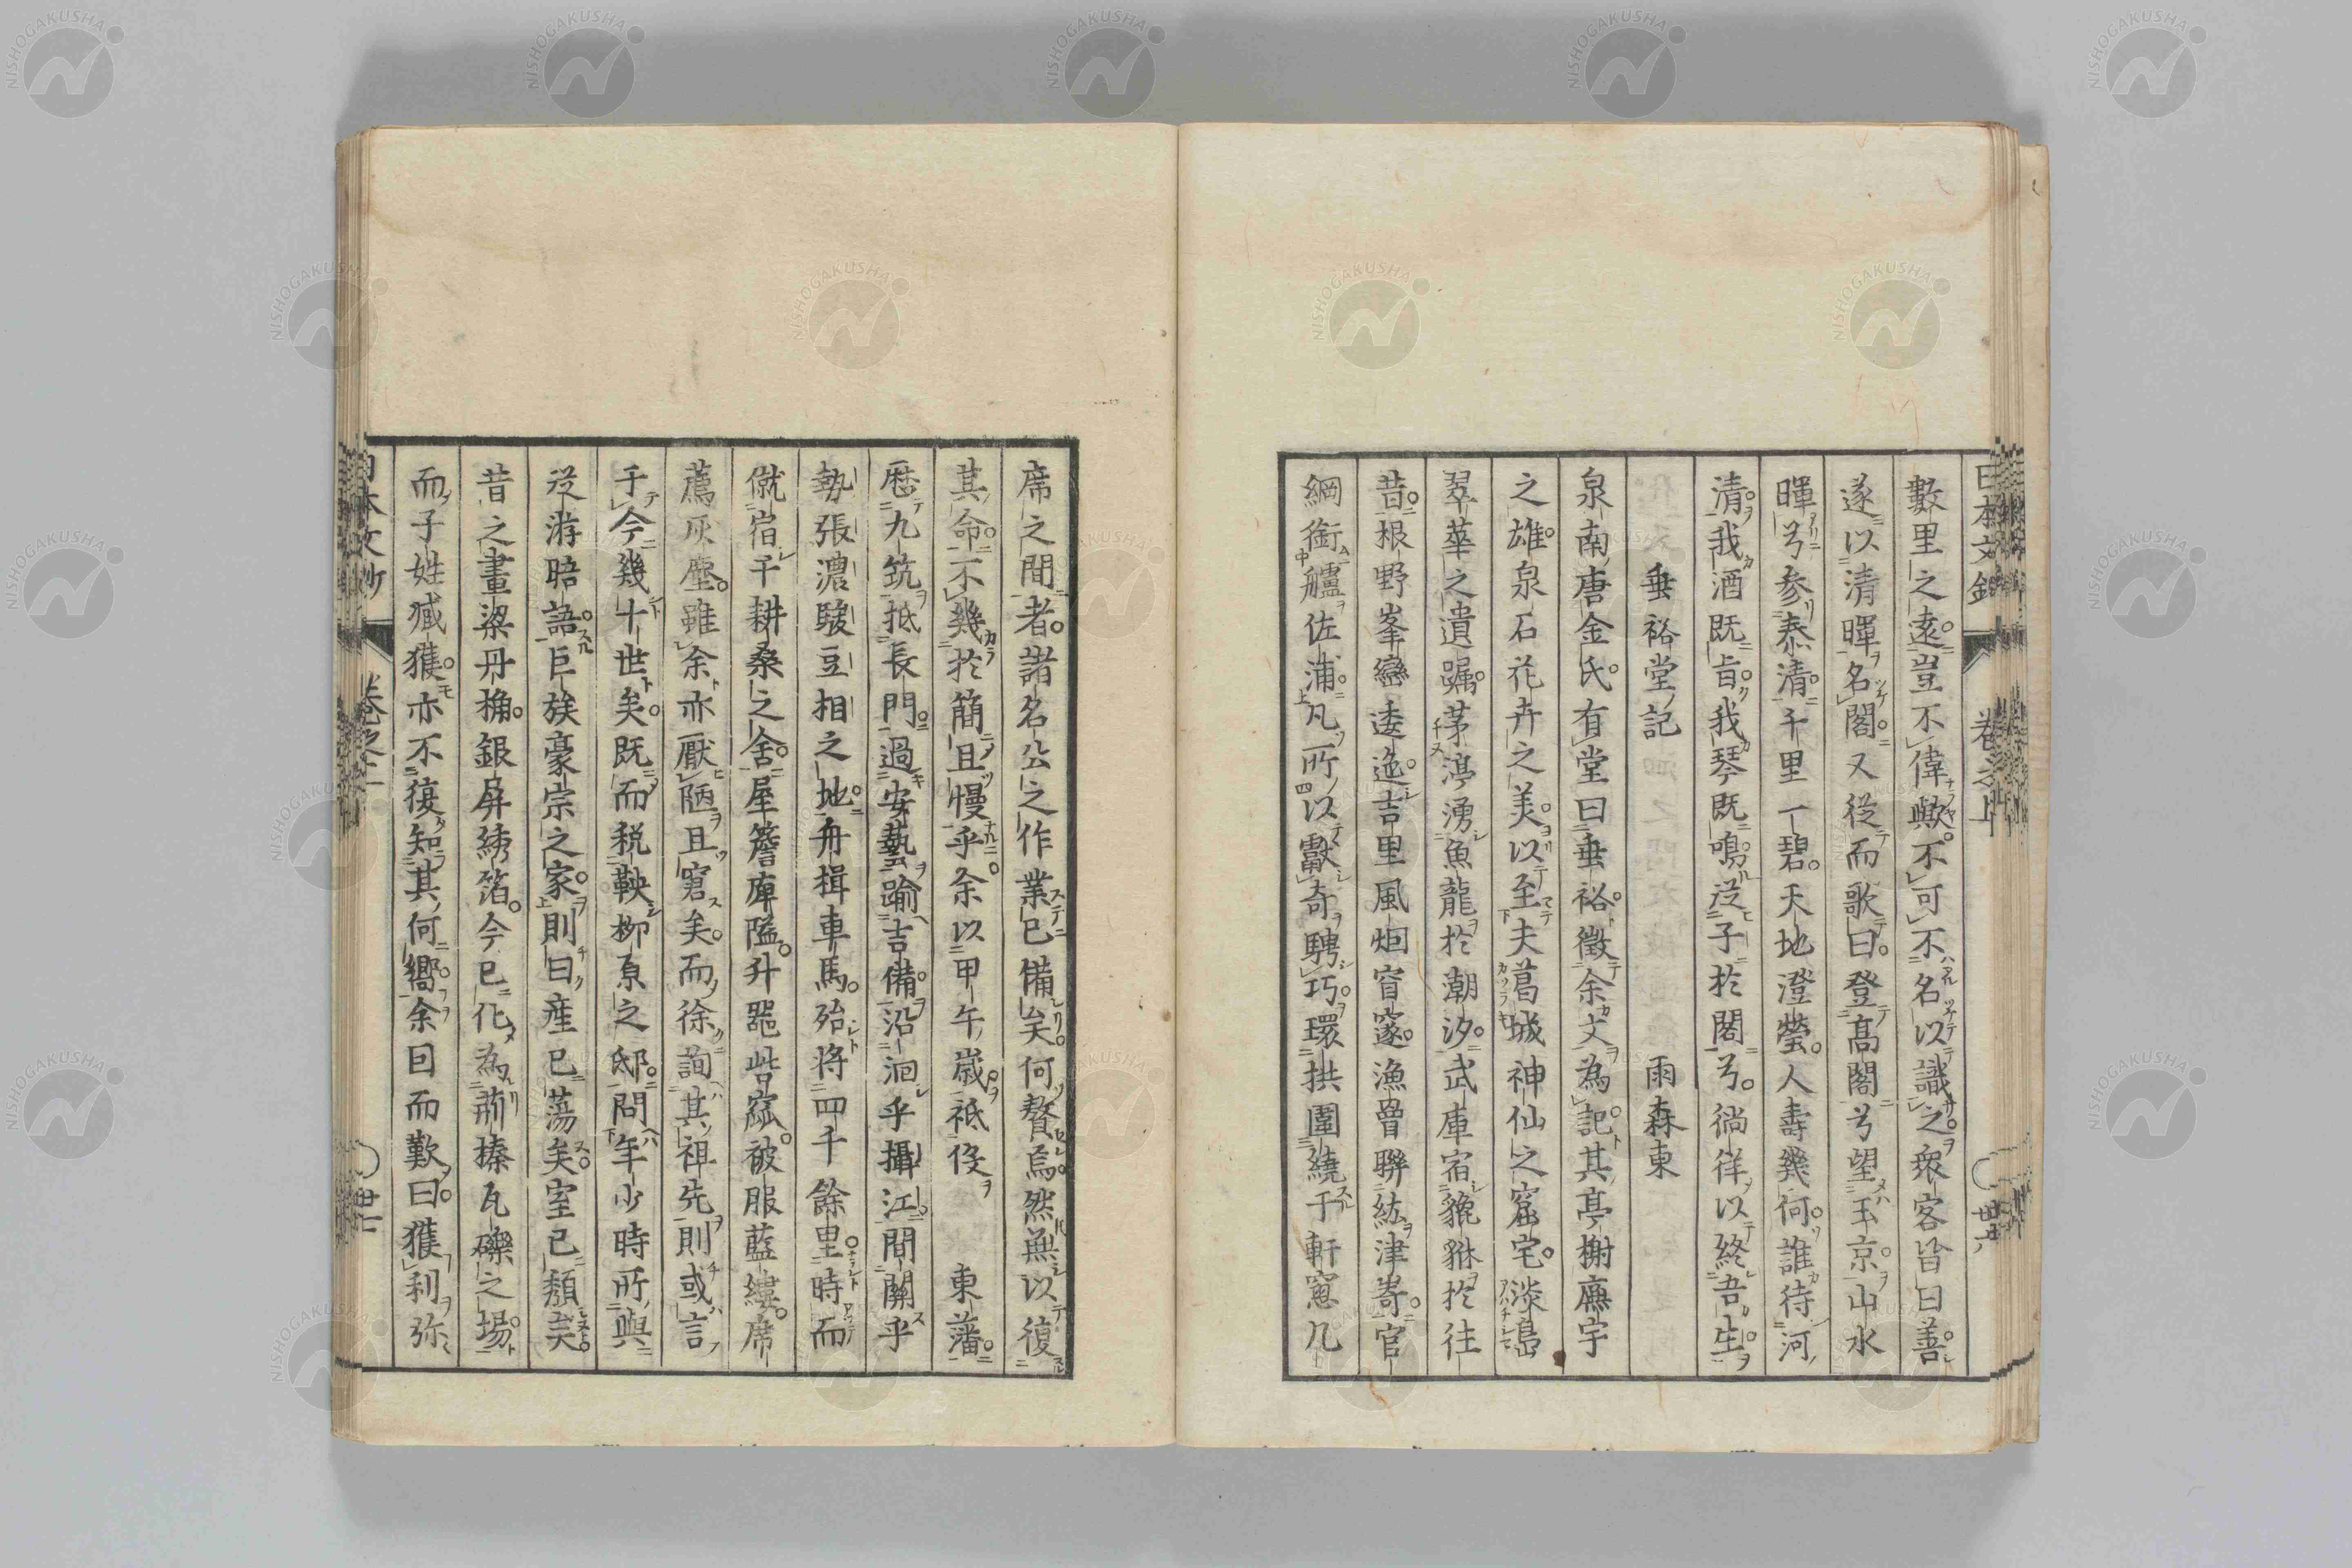 數里之遠豈不偉歟不可不名以識之衆客皆曰善
遂以清暉名閣又從而歌曰登高閣兮望玉京山水
暉兮参泰清千里一碧天地澄瑩人壽幾何誰待河
清我酒既旨我琴既鳴從子於閣兮徜徉以終吾生
垂裕堂記 雨森東
泉南唐金氏有堂曰垂裕徵余文為記其亭榭廡宇
之雄泉石花卉之美以至夫葛城神仙之窟宅淡島
翠華之遺躅茅渟湧魚龍於潮汐武庫宿貔貅於往
昔根野峯巒逶迤吉里風烟窅邃漁罾聯紘津寄官
綱銜艫佐浦凡所以獻奇騁巧環拱圍繞于軒窓几
席之間者諸名公之作業已備矣何贅焉然無以復
其命不幾於簡且慢乎余以甲午歳祗役東藩
歴九筑抵長門過安藝踰吉備沿洄乎攝江間關乎
勢張濃駿豆相之地舟揖車馬殆将四千餘里時而
僦宿于耕桑之舍屋簷庳隘升噐呰窳被服藍縷席
薦灰塵雖余亦厭陋且窮矣而徐詢其祖先則或言
于今幾十世矣既而税鞅柳原之邸問年少時所與
從游晤語巨族豪宗之家則曰産已蕩矣室已頽矣
昔之畫梁丹桷銀屏綉箔今已化為荊榛瓦礫之場
而子姓臧獲亦不復知其何嚮余因而歎曰獲利弥
日本文鈔 卷之上
NISHOGAKUSHA